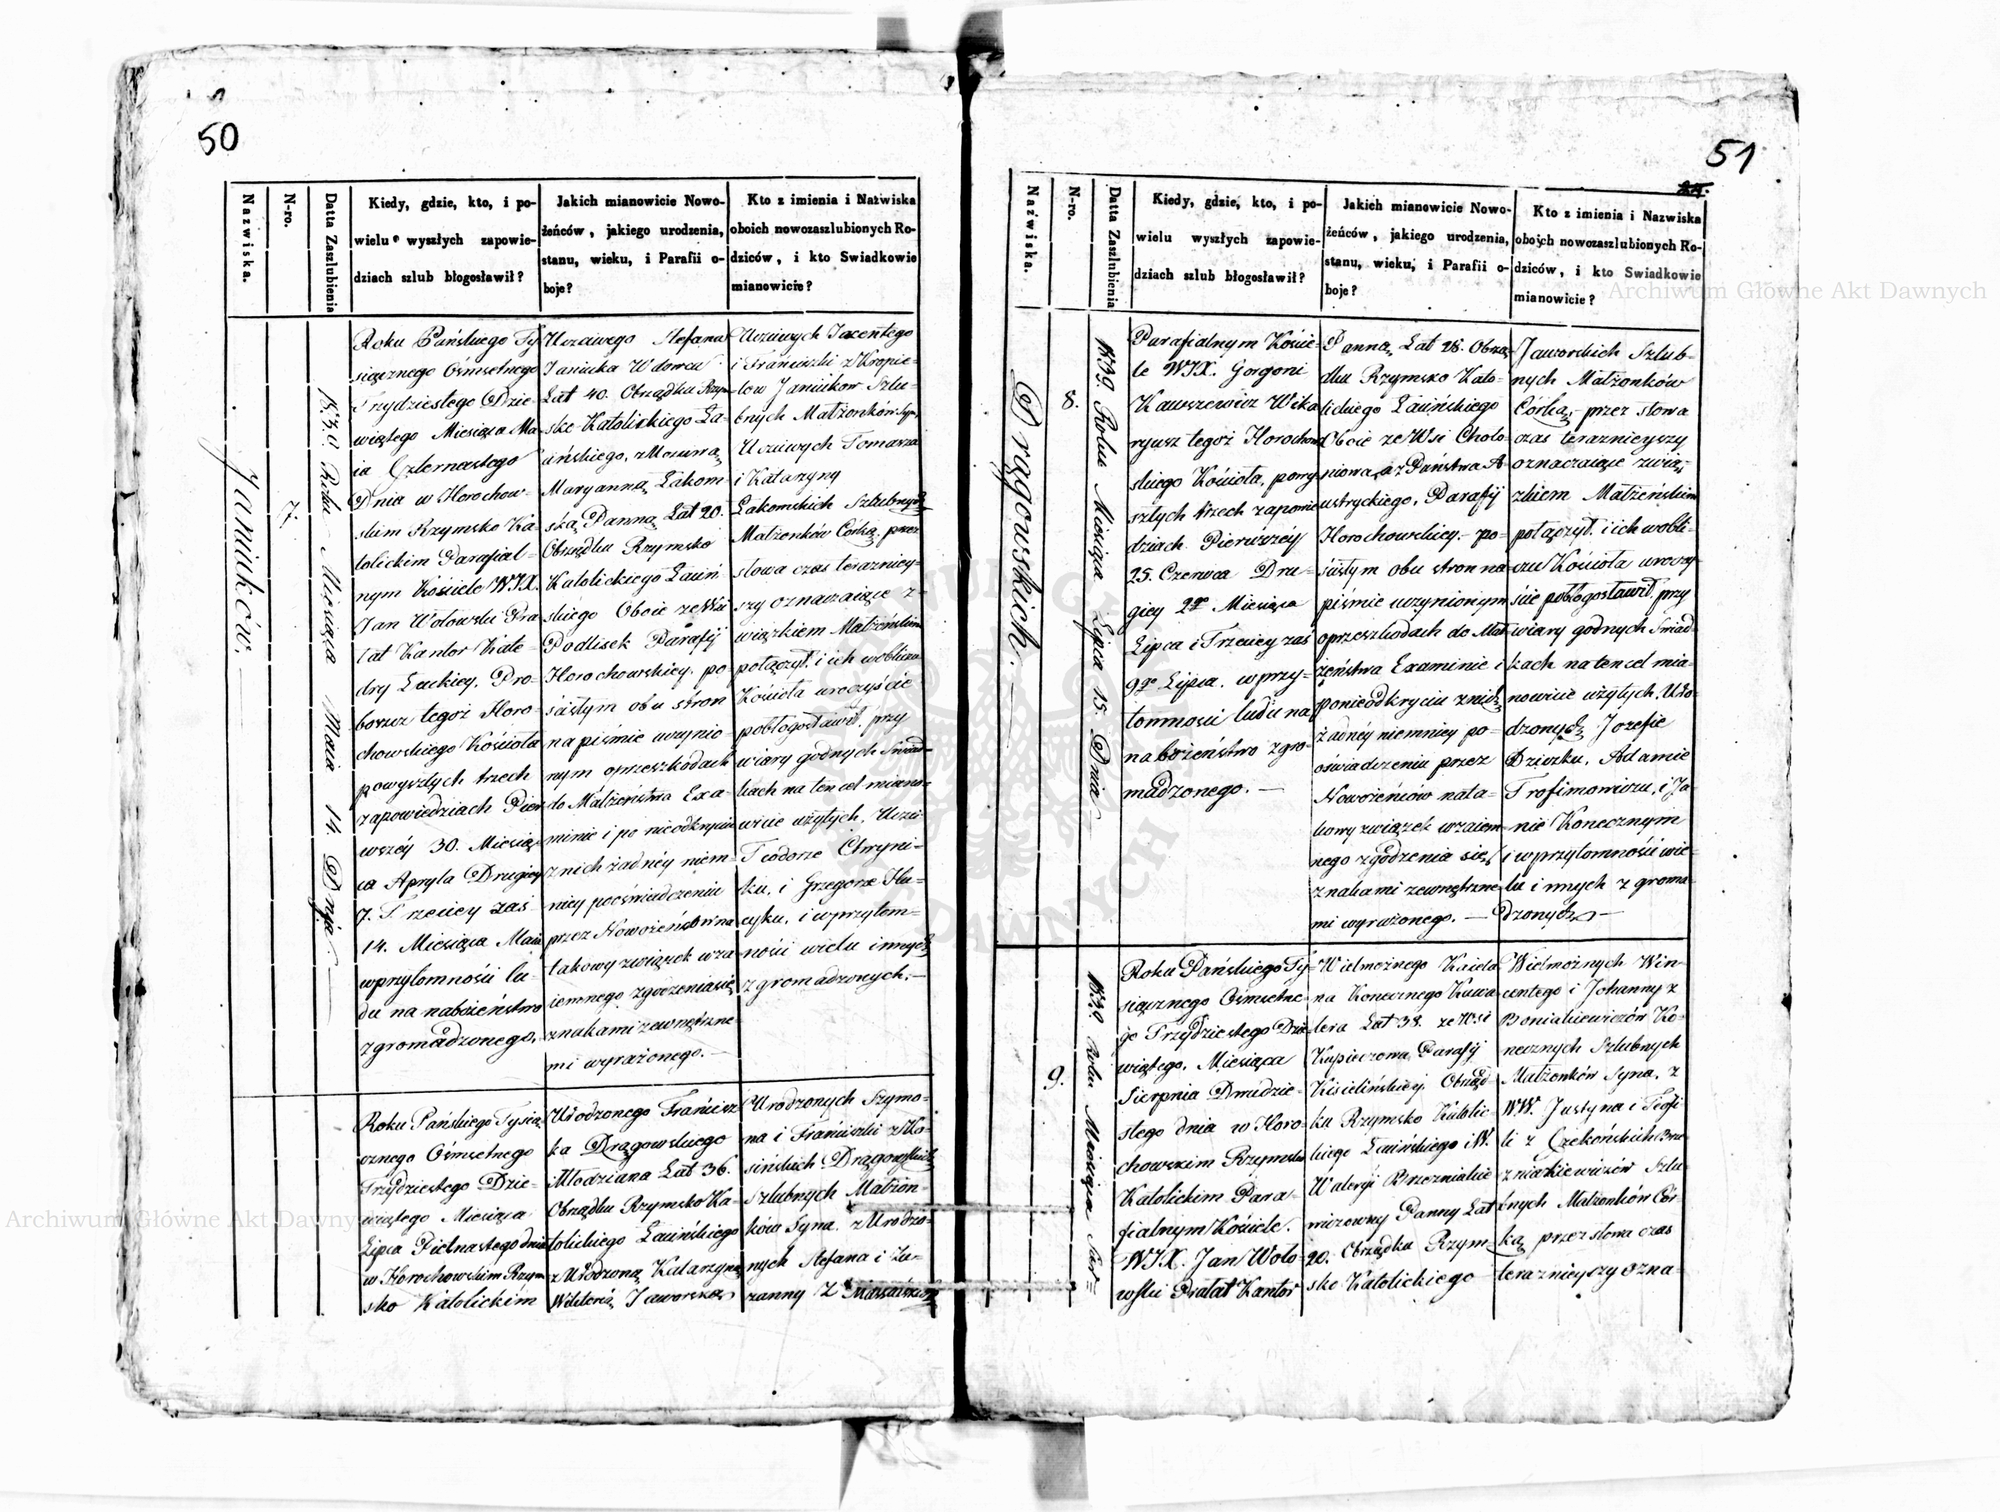 50
Nazwiska.
N-ro.
Datta Zaszlubienia
Kiedy, gdzie, kto, i po-
wielu wyszłych zapowie-
dziach szlub błogosławił?
Jakich mianowicie Nowo-
żeńców, jakiego urodzenia,
stanu, wieku, i Parafii o-
boje?
Kto z imienia i Nazwiska
oboich nowozaszlubionych Ro-
dziców, i kto Swiadkowie
mianowicie?
Janiuków.
7.
1839 Roku Miesiąca Maia 14. Dnia
Roku Pańskiego Ty-
siącznego Ośmsetnego
Trzydziestego Dzie-
wiątego Miesiąca Ma-
ia Czternastego
Dnia w Horochow-
skim Rzymsko Ka-
tolickim Parafial-
nym Kościele WJX.
Jan Wołowski Pra-
łat Kantor Kate-
dry Łuckiey, Pro-
boszcz tegoż Horo-
chowskiego Kościoła
powyszłych trzech
zapowiedziach Pier-
wszéy 30. Miesią-
ca Apryla Drugiey
7. Trzeciey zaś
14. Miesiąca Maia
wprzytomności lu-
du na nabożeństwo
zgromadzonego.
Uczciwego Stefana
Janiuka Wdowca
Lat 40. Obrządku Rzym-
sko Katolickiego Ła-
cińskiego, z Uczciwą
Maryanną Łakom-
ską Panną Lat 20.
Obrządku Rzymsko
Katolickiego Łaciń-
skiego Oboie ze Wsi
Podlisek Parafij
Horochowskiey, po
ścisłym obu stron
na piśmie uczynio-
nym oprzeszkodach
do Małżeństwa Exa-
minie i po nieodkryciu
znich żadnéy niem-
niey poświadczeniu
przez Nowożeńców na
takowy związek wza-
iemnego zgodzenia się
znakami zewnętrzne-
mi wyrażonego.
Uczciwych Jacentego
i Franciszki z Kropie-
low Janiukow Szlu-
bnych Małżonków Syn,
Uczciwych Tomasza
i Katarzyny
Łakomskich Szlubnych
Małżonków Córką, przez
słowa czas terazniey-
szy oznaczaiące z-
wiązkiem Małżeńskim
połączył, i ich wobliczu
Kościoła uroczyście
pobłogosławił, przy
wiary godnych Świad-
kach na ten cel miano-
wicie użytych, Uczci.
Teodorze Chryni-
ku, i Grzegorze Hu-
cyku, i wprzytom-
ności wielu innych
zgromadzonych.
Roku Pańskiego Tysią-
cznego Ośmsetnego
Trzydziestego Dzie-
wiątego Miesiąca
Lipca Piętnastego dnia
w Horochowskim Rzym-
sko Katolickim
Urodzonego Francisz-
ka Drągowskiego
Młodziana Lat 36.
Obrządku Rzymsko Ka-
tolickiego Łacińskiego
z Urodzoną Katarzyną
Jaworską
Urodzonych Szymo-
na i Franciszki z Ko-
sińskich Drągowskich
Szlubnych Małżon-
ków Syna, z Urodzo-
nych Stefana i Zu-
zanny Z
51
Nazwiska.
N-ro.
Datta Zaszlubienia
Kiedy, gdzie, kto, i po-
wielu wyszłych zapowie-
dziach szlub błogosławił?
Jakich mianowicie Nowo-
żeńców, jakiego urodzenia,
stanu, wieku, i Parafii o-
boje?
Kto z imienia i Nazwiska
obojch nowozaszlubionych Ro-
dziców, i kto Swiadkowie
mianowicie?
Drągowskich.
8.
1839 Roku Miesiąca Lipca 15. Dnia
Parafialnym Koście-
le WJX. Gorgoni
Kauszewicz Wika-
ryusz tegoż Horochow-
skiego Kościoła, powy-
szłych trzech zapowie-
dziach Pierwszéy
25. Czerwca Dru-
giey 2go Miesiąca
Lipca i Trzeciey zaś
9go Lipca, wprzy-
tomności ludu na
nabożeństwo zgro-
madzonego.
Panną, Lat 28. Obrzą-
dku Rzymsko Kato-
lickiego Łacińskiego
Oboie ze Wsi Choło-
niowa, a z Państwa A-
ustryckiego, Parafij
Horochowskiey, po-
ścisłym obu stron na
piśmie uczynionym
oprzeszkodach do Mał-
żeństwa Examinie i
ponieodkryciu znich
żadnéy niemniey po-
oświadczeniu przez
Nowożeńców nata-
kowy związek wzaiem-
nego zgodzenia się
znakami zewnętrzne-
mi wyrażonego.
Jaworskich Szlub-
nych Małżonków
Córką, przez słowa
czas teraznieyszy
oznaczaiące zwią-
zkiem Małżeńskim
połączył, i ich wobli-
czu Kościoła uroczy-
ście pobłogosławił, przy
wiary godnych Świad-
kach na ten cel mia-
nowicie użytych, Uro-
dzonych Jozefie
Dziczku, Adamie
Trofimowiczu, i Ja-
nie Konecznym
i wprzytomności wie-
lu innych zgroma-
dzonych
9.
1839 Roku Miesiąca Sier-
Roku Pańskiego Ty-
siącznego Ośmsetne-
go Trzydziestego Dzie-
wiątego, Miesiąca
Sierpnia Dwudzie-
stego dnia w Horo-
chowskim Rzymsko
Katolickim Para-
fialnym Kościele.
WJX. Jan Woło-
wski Prałat Kantor
Wielmożnego Kaieta-
na Konecznego Kawa-
lera Lat 38. ze Wsi
Kupieczowa Parafij
Kisielińskiey Obrząd-
ku Rzymsko Katolic-
kiego Łacińskiego i W.
Waleryi Brzezniakie-
wiczowny Panny Lat
20. Obrządku Rzym-
sko Katolickiego
Wielmożnych Win-
centego i Johanny z
Boniakiewiczów Ko-
necznych Szlubnych
Małżonków Syna, z
WW. Justyna i Teofi-
li z Czekońskich Brze-
zniakiewiczów Szlu-
bnych Małżonków Cór-
ką, przez słowa czas
teraznieyszy ozna-
Archiwum Główne Akt Dawnych
Archiwum Główne Akt Dawnych